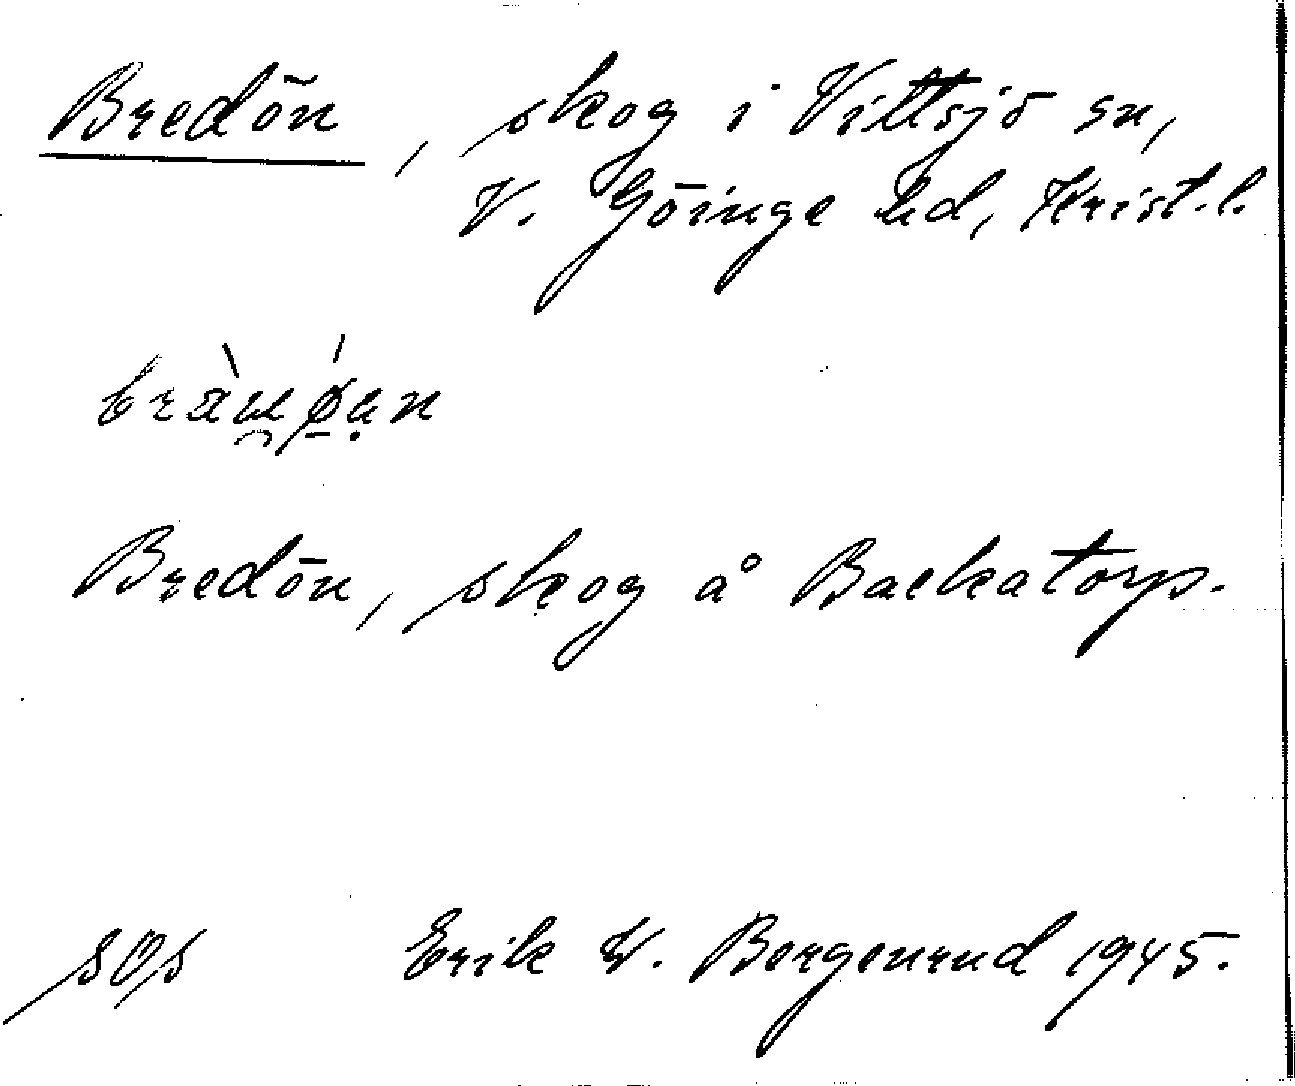 Bredön, skog i Vittsjö sn,
V. Göinge hd, Krist.l.
Bredön, skog å Backatorp.
Erik W. Bergenrud 1945.